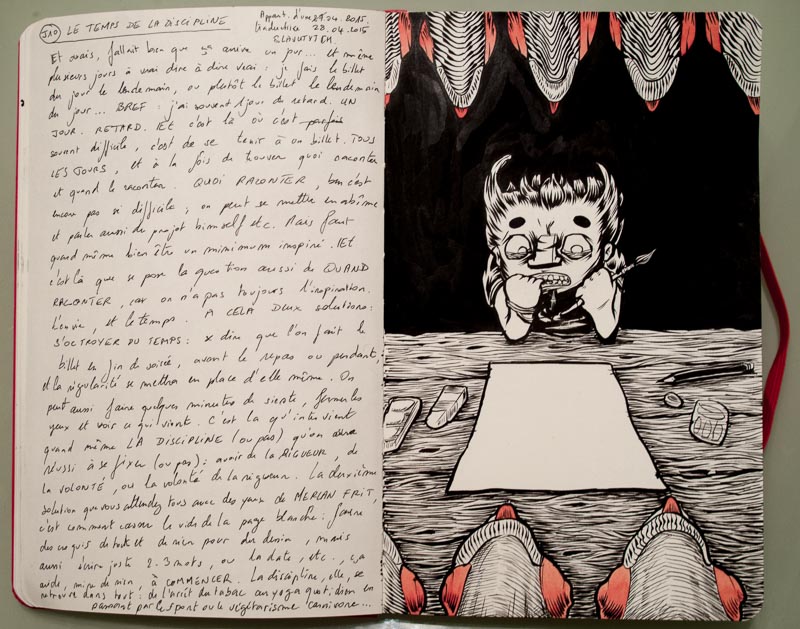 J10 LE TEMPS DE LA DISCIPLINE
Appart. d'une 27.04.2015.
28.04.2015
SLAVUTYTCH
Et ouais, fallait bien que ça arrive un jour... et même
plusieurs jours à vrai dire à dire vrai : je fais le billet
du jour le lendemain, ou plutôt le billet le lendemain
du jour... BREF : j'ai souvent 1 jour de retard. UN
JOUR. RETARD. Et c'est là où c'est parfois
souvent difficile, c'est de se tenir à un billet. TOUS
LES JOURS, et à la fois de trouver quoi raconter
et quand le raconter. QUOI RACONTER, ben c'est
encore pas si difficile ; on peut se mettre en abîme
et parler aussi du projet himself etc. Mais faut
quand même bien être un minimum inspiré. Et
c'est là que se pose la question aussi de QUAND
RACONTER, car on n'a pas toujours l'inspiration.
L'envie, et le temps. A CELA DEUX solutions :
S'OCTROYER DU TEMPS : dire que l'on fait le
billet en fin de soirée, avant le repas ou pendant,
et la régularité se mettra en place d'elle même. On
peut aussi faire quelques minutes de sieste, fermer les
yeux et voir ce qui vient. C'est là qu'intervient
quand même LA DISCIPLINE (ou pas) qu'on aura
réussi à se fixer (ou pas) : avoir de la RIGUEUR, de
la VOLONTÉ, ou la volonté de la rigueur. La deuxième
solution que vous attendez tous avec des yeux de MERLAN FRIT,
c'est comment casser le vide de la page blanche : faire
des croquis de tout et de rien pour du dessin, mais
aussi écrire juste 2.3 mots, ou la date, etc., ça
aide, mine de rien, à COMMENCER. La discipline, elle, se
retrouve dans tout : de l'arrêt du tabac au yoga quotidien en
passant par le sport ou le végétarisme carnivore...